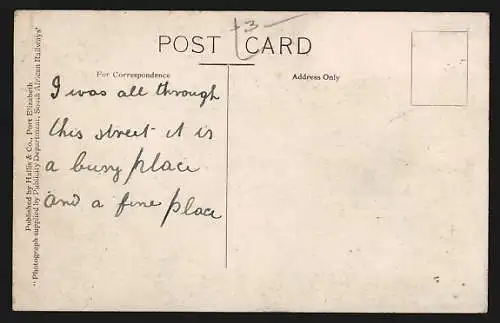 +3-
POST CARD
For Correspondence
Address Only
I was all through
this street it is
a busy place
and a fine place
Published by Hallis & Co., Port Elizabeth.
"Photograph supplied by Publicity Department, South African Railways"